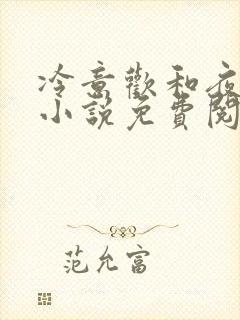 冷意歡和夜
小說免費閱
范允富